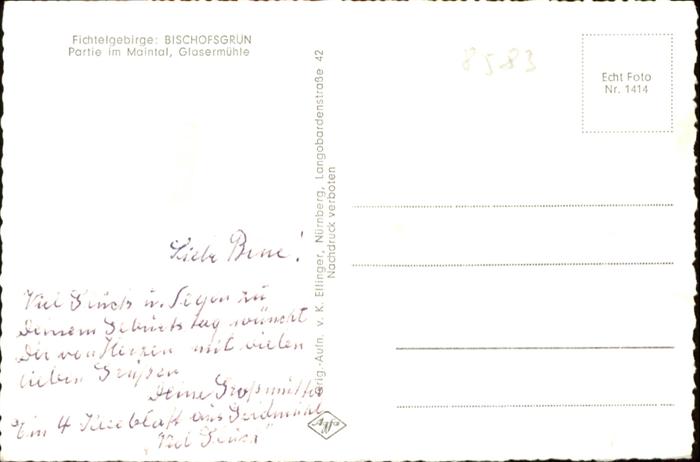 Fichtelgebirge: BISCHOFSGRÜN
Partie im Maintal, Glasermühle
8583
Echt Foto
Nr. 1414
Orig.-Aufn. v. K. Ellinger, Nürnberg, Langobardenstraße 42
Nachdruck verboten
Liebe
Viel Glück u. Segen zu
Deinem Geburtstag wünscht
Dir von Herzen mit vielen
lieben Grüßen
Deine Großmutter
Ein 4 Kleeblatt aus
"Viel Glück"
Agfa